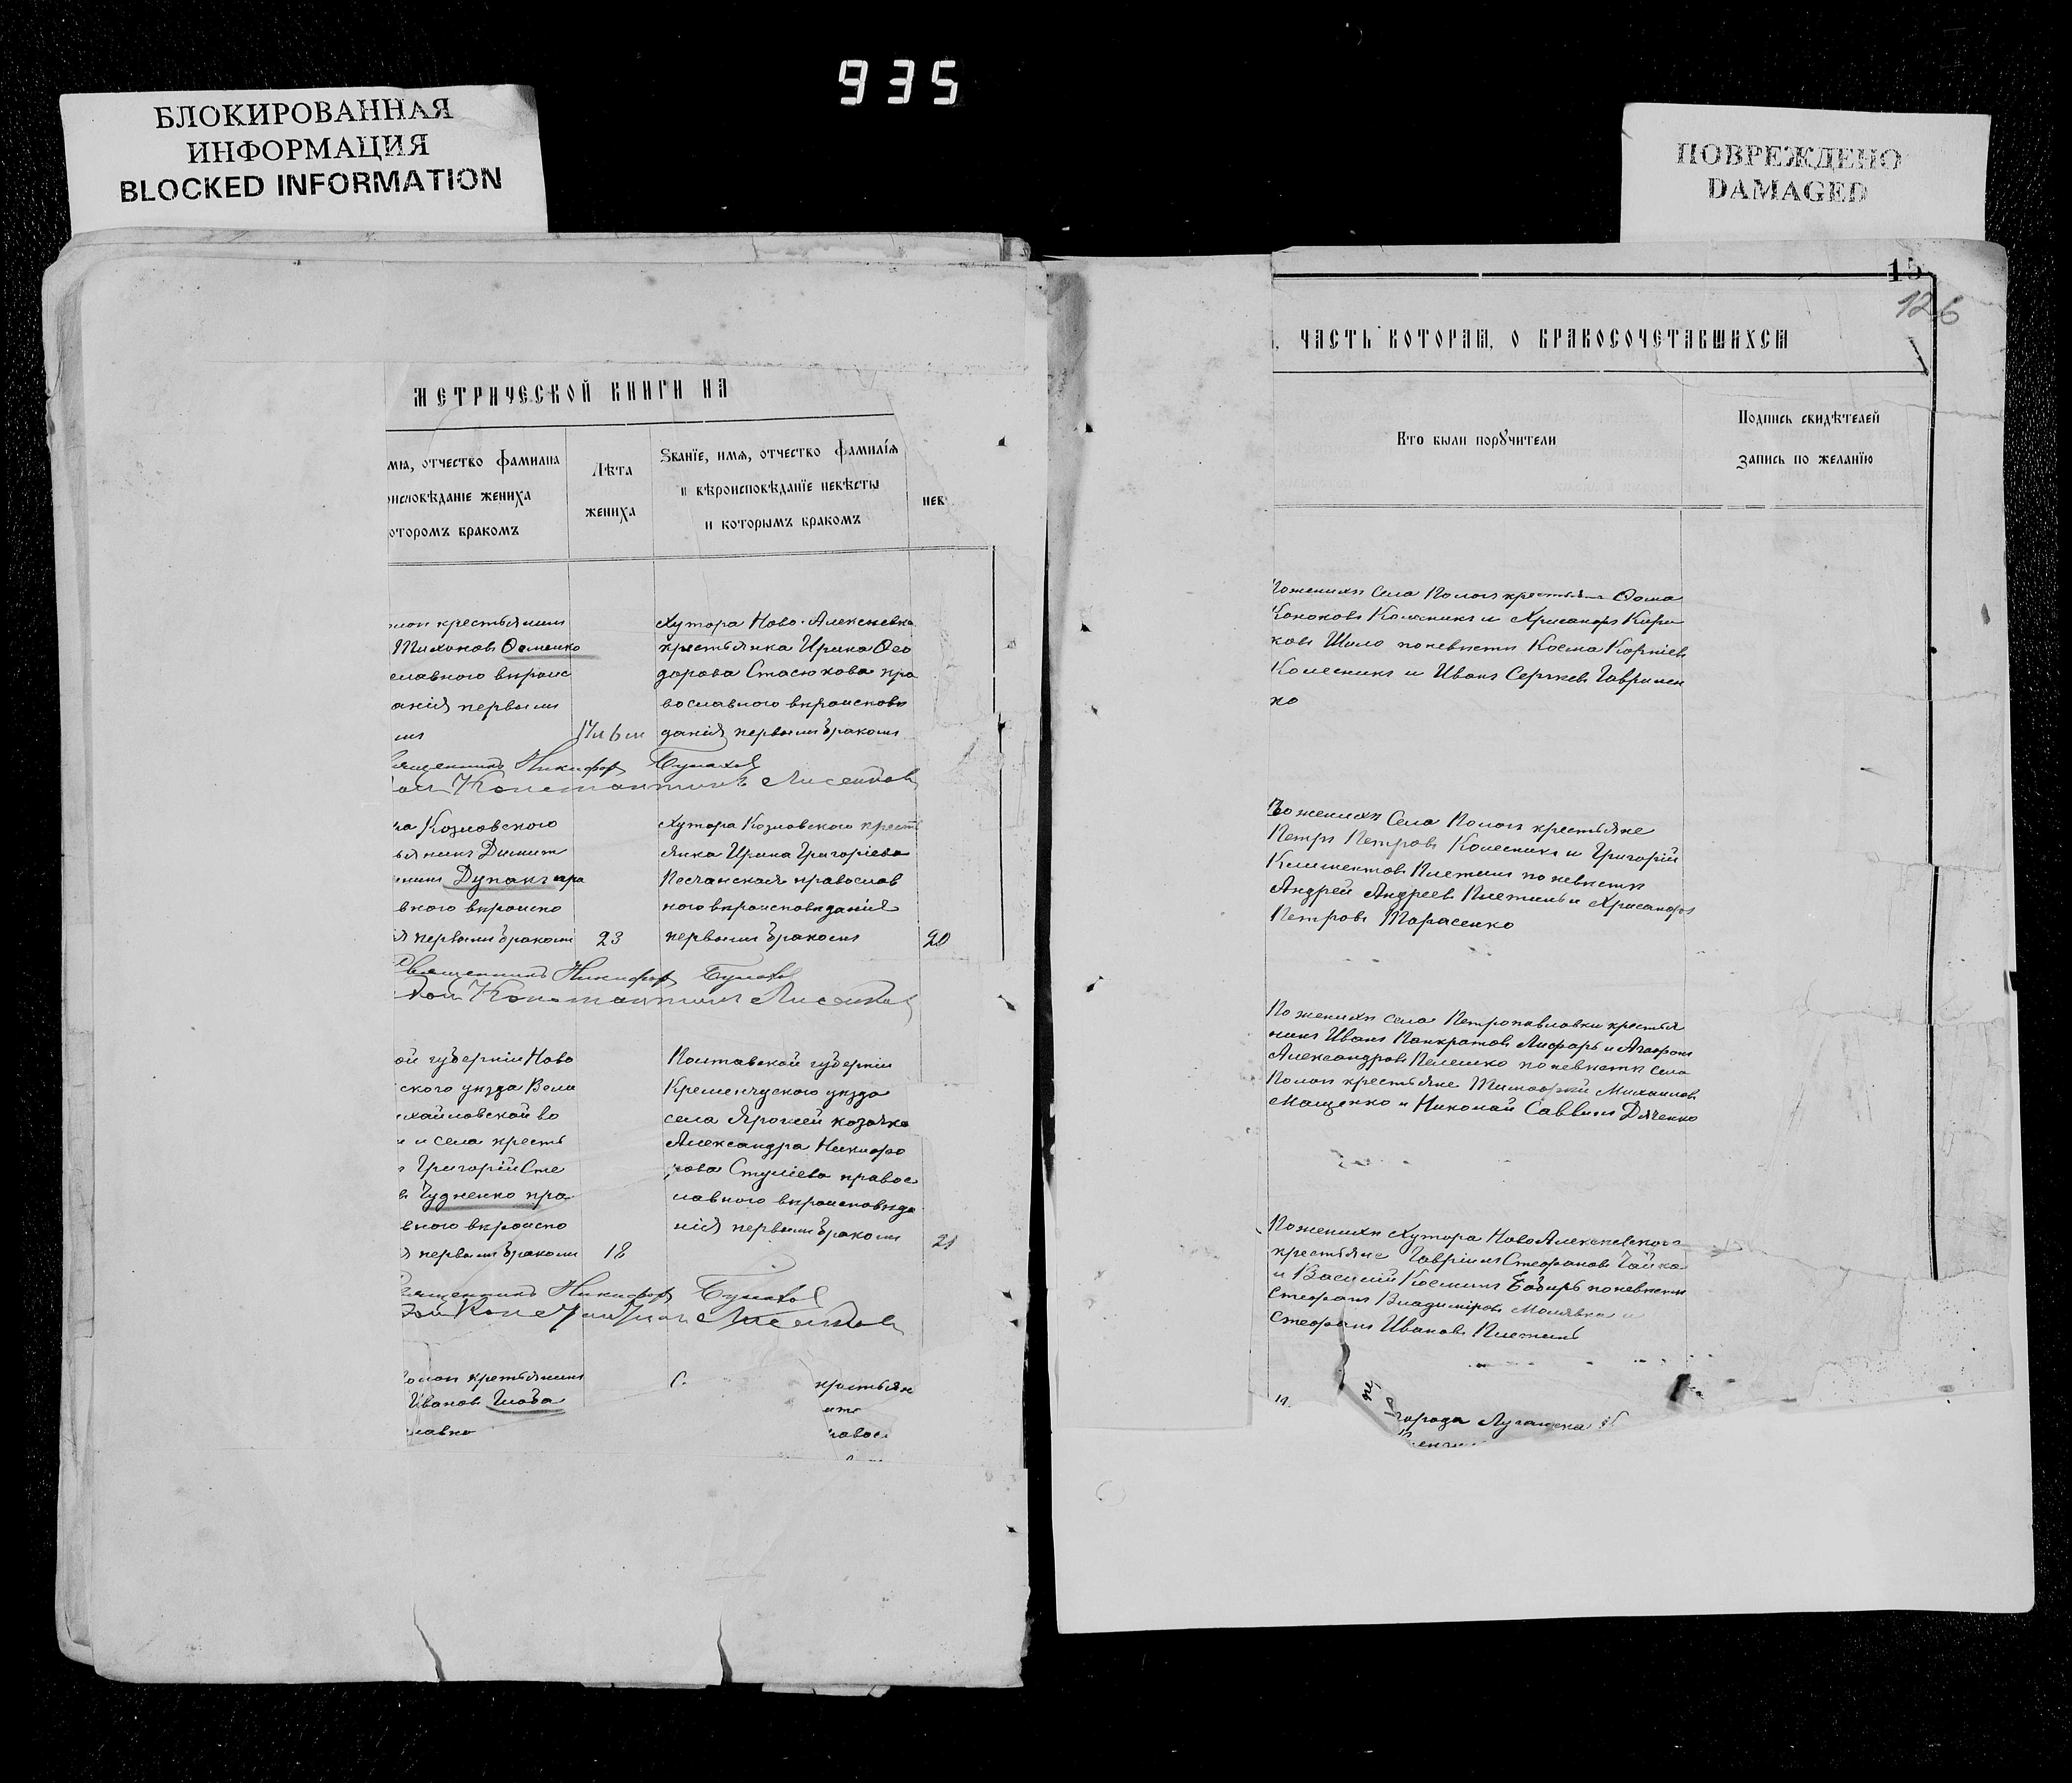 935
БЛОКИРОВАННАЯ
ИНФОРМАЦИЯ
BLOCKED INFORMATION
ПОВРЕЖДЕНО
DAMAGED
МЕТРИЧЕСКОЙ КНИГИ НА
мѧ, отчество фамилиа
оисповѣданіе жениха
оторомъ бракомъ
Лѣта
жениха
Званїе, имѧ, отчество фамилїѧ
и вѣроисповѣданїе невѣсты
и которымъ бракомъ
нев
крестьянинъ
Тихоновъ
славного вѣроис
анія первым
мъ
17 и 6 м
Хутора Ново-Алексѣевка
крестьянка Ирина Ѳео
дорова Стасюкова пра
вославного вѣроисповѣ
данія первымъ бракомъ
Священникъ Никифоръ
Константинъ Лисенков
ра Козловского
ьянинъ Димит
Дупакъ пра
вного вѣроиспо
я первымъ бракомъ
23
Хутора Козловского крест
янка Ирина Григоріева
Песчанская православ
ного вѣроисповѣданія
первымъ бракомъ
20
Священникъ Никифоръ
Константинъ Лисенков
ой губерніи Ново
ского уѣзда Вели
хайловской во
и села кресть
Григорій Сте
въ Чудненко пра
вного вѣроиспо
я первымъ бракомъ
18
Полтавской губерніи
Кременчуского уѣзда
села козачка
Александра Никифо
рова православ
лавного вѣроисповѣда
нія первымъ бракомъ
21
Священникъ Никифоръ
Лисенков
крестьянинъ
Ивановъ
лавно
С.
крестьян
равос
15
126
, ЧАСТЬ ВТОРАѦ, О БРАКОСОЧЕТАВШИХСѦ
Кто были порꙋчители
Подпись свидѣтелей
Запись по желанїю
По женихѣ Села Пологъ крестьяне Ѳома
Кононовъ Колесникъ и Хрисанфъ Кири
ковъ Шило по невѣстѣ Косма Корніевъ
Колесникъ и Иванъ Сергѣевъ Гаврилен
ко
По женихѣ Села Пологъ крестьяне
Петръ Петровъ Колесникъ и Григорій
Климентовъ Плетинь по невѣстѣ
Андрей Андреевъ Плетинь и Хрисанфъ
Петровъ Тарасенко
По женихѣ села Петропавловки крестья
нинъ Иванъ Панкратовъ Лифарь и Агафонъ
Александровъ Пелешко по невѣстѣ села
Пологъ крестьяне Тимофей Михаиловъ
Мащенко и Николай Саввинъ Дяченко
По женихѣ Хутора НовоАлексѣевского
крестьяне Гавріилъ Стефановъ Чайка
и Василій Косминъ Бабырь по невѣстѣ
Стефанъ Владиміровъ Молявка и
Стефанъ Ивановъ Плетинь
города Луганска